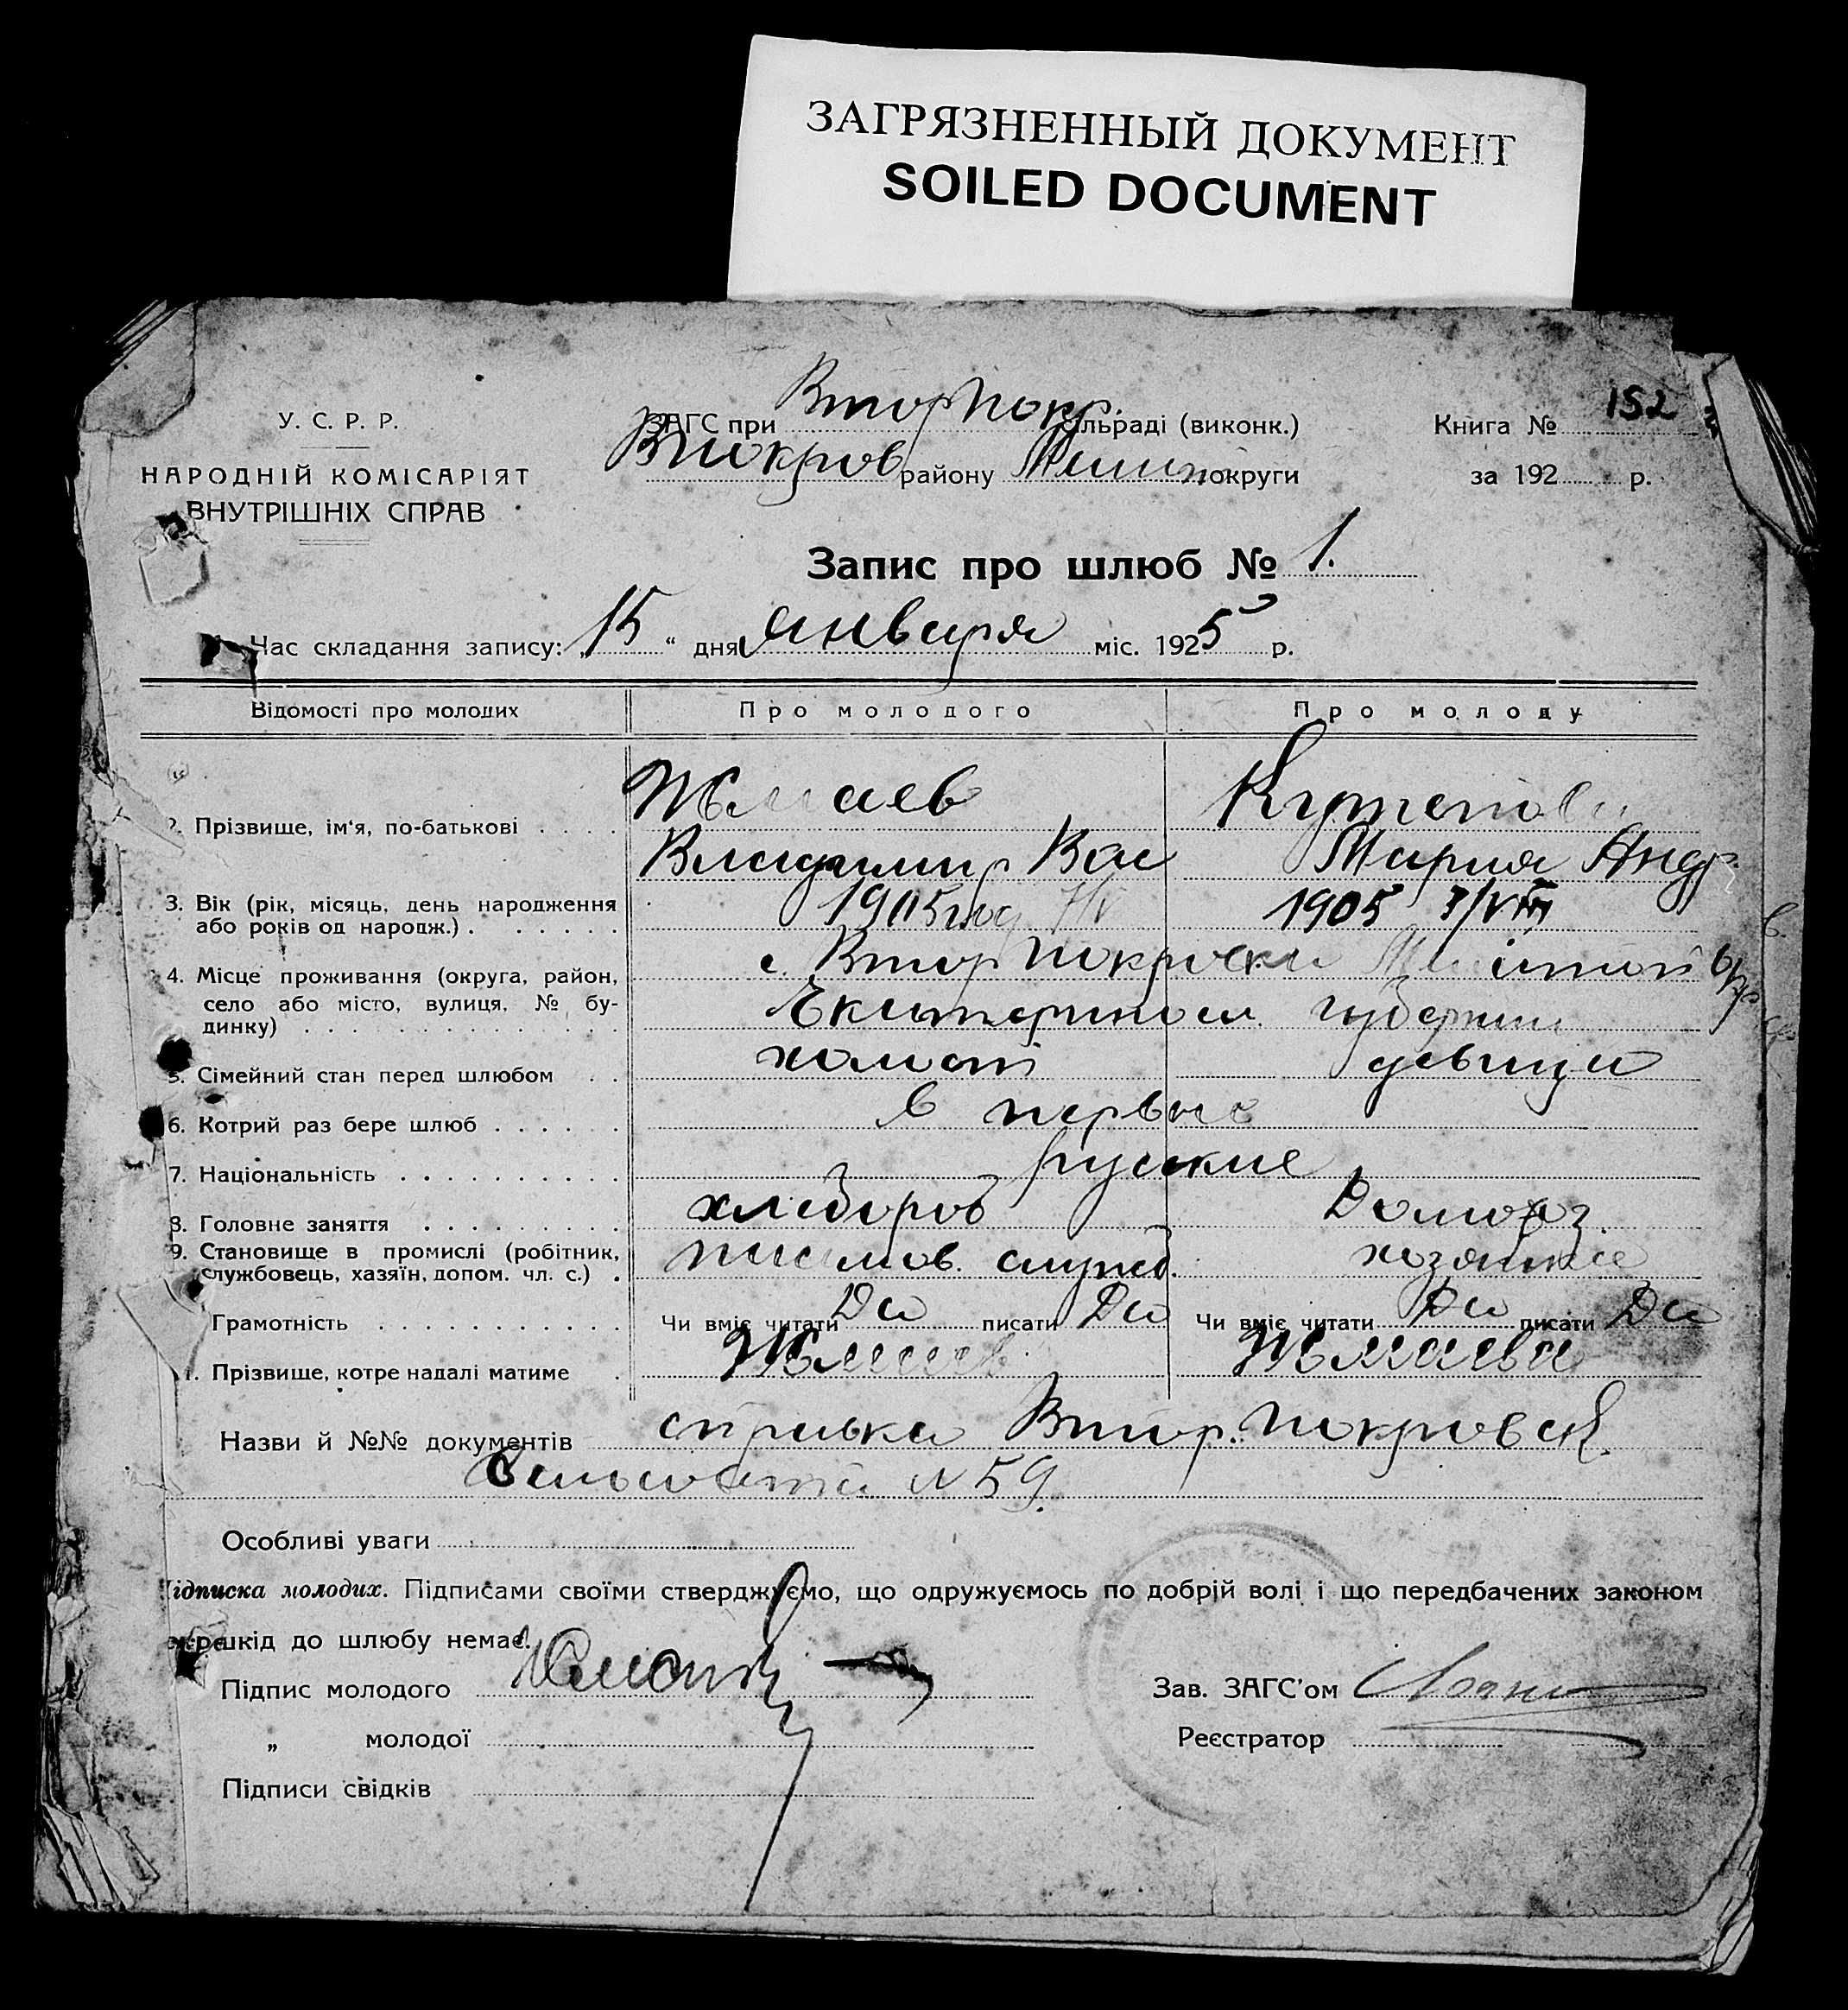 ЗАГРЯЗНЕННЫЙ ДОКУМЕНТ
SOILED DOCUMENT
У. С. Р. Р.
НАРОДНІЙ КОМІСАРІЯТ
ВНУТРІШНІХ СПРАВ
ЗАГС при ВторПокр. сільраді (виконк.)
району округи
Книга № 152
за 192 р.
Запис про шлюб № 1.
Час складання запису: „15“ дня января міс. 1925 р.
Відомості про молодих Про молодого Про молоду
2. Прізвище, ім'я, по-батькові
Владимир Вас Мария Андр.
3. Вік (рік, місяць, день народження 1905 год 1905 7/VIII
або років од народж.)
4. Місце проживання (округа, район, с. Втор Покровка
село або місто, вулиця, № бу- Екатериносл. губернии
динку)
5. Сімейний стан перед шлюбом холост девица
6. Котрий раз бере шлюб в первые
7. Національність русские
8. Головне заняття хлебороб Домохоз.
9. Становище в промислі (робітник, служб. хозяйка
службовець, хазяїн, допом. чл. с.)
Грамотність Чи вміє читати Да писати Да Чи вміє читати Да писати Да
11. Прізвище, котре надалі матиме
Назви й №№ документів справка Втор. Покровск.
Сельсовета N 59.
Особливі уваги
Підписка молодих. Підписами своїми стверджуємо, що одружуємось по добрій волі і що передбачених законом
перешкід до шлюбу немає.
Підпис молодого
Зав. ЗАГС'ом
„ молодої
Реєстратор
Підписи свідків